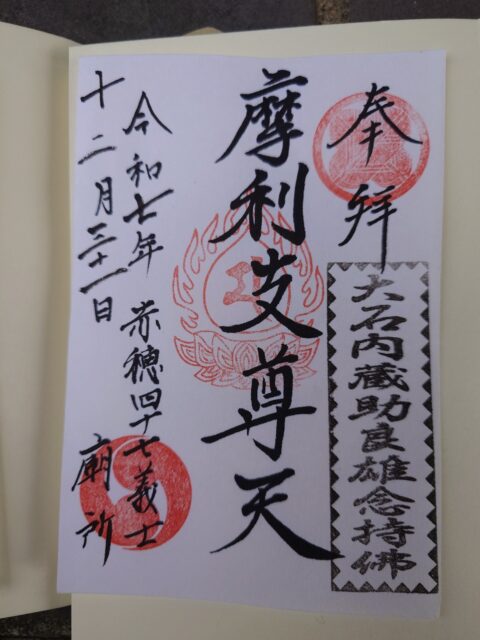 奉拜
大石内蔵助良雄念持佛
摩利支尊天
令和七年
十二月三十一日
赤穂四十七義士
廟所